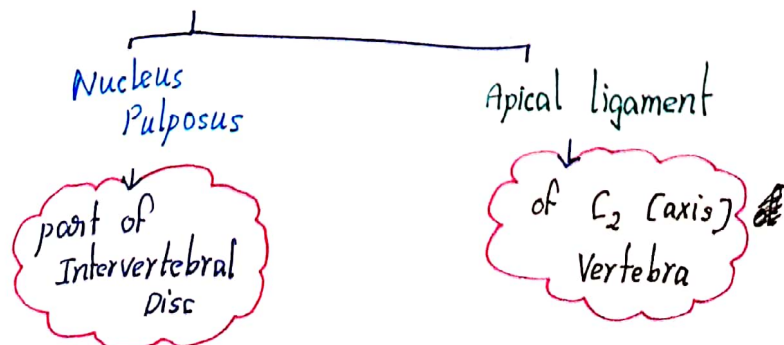 Nucleus
Pulposus
part of
Intervertebral
Disc
Apical ligament
of C₂ [axis]
Vertebra